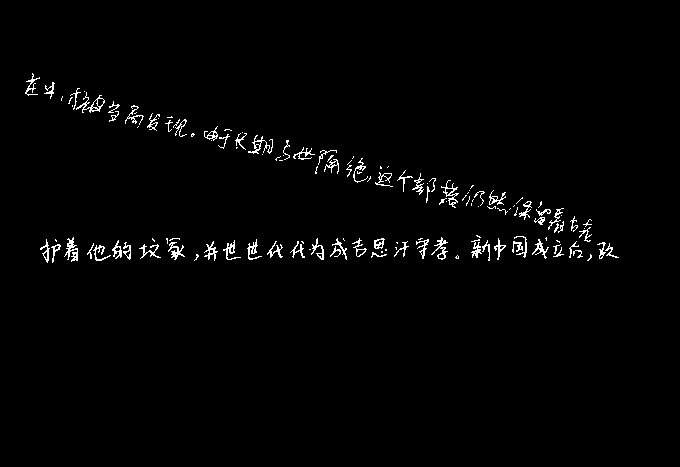 被当局发现。由于长期与世隔绝,这个部落仍然保留着古老
护着他的坟冢,并世世代代为成吉思汗守孝。新中国成立后,政